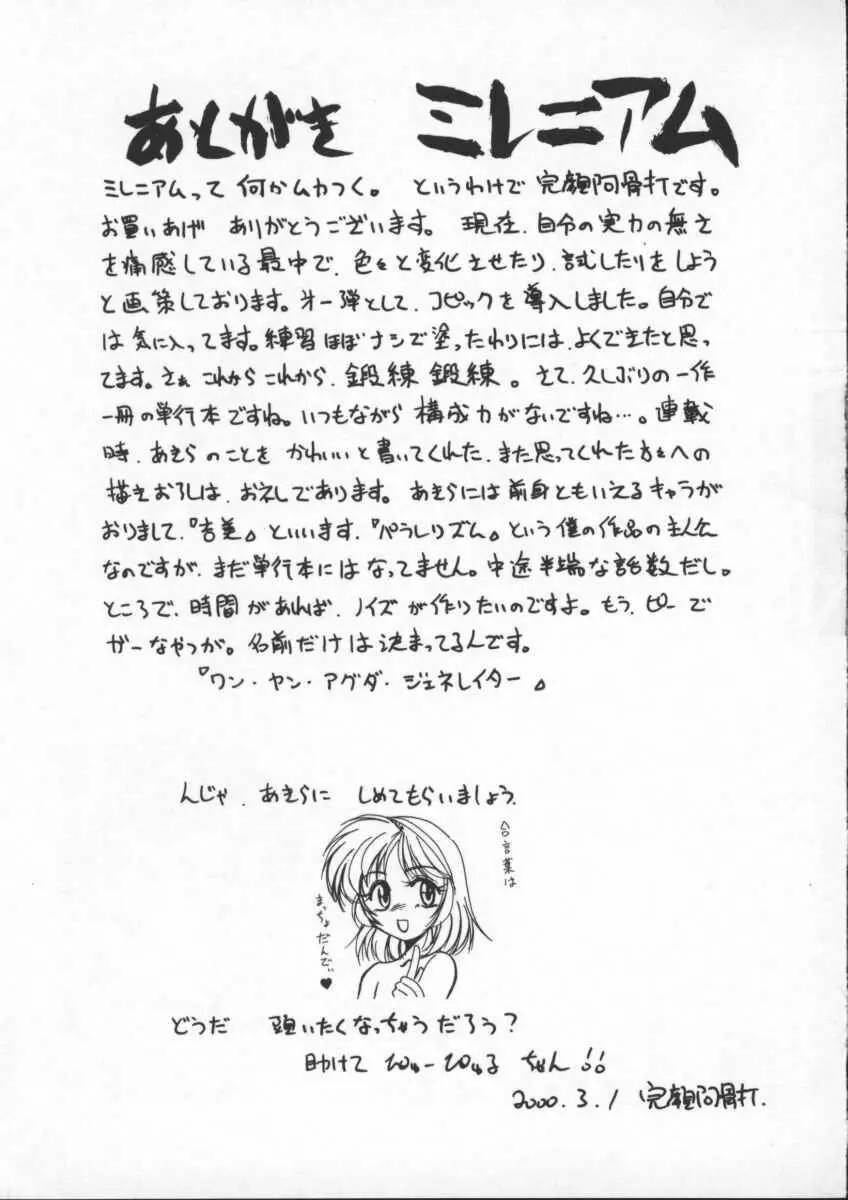 あとがき ミレニアム
ミレニアムって 何かムカつく。 というわけで 完顔阿骨打です。
お買いあげ ありがとうございます。 現在、自分の実力の無さ
を痛感している最中で、色々と変化させたり、試したりをしよう
と画策しております。才一弾として、コピックを導入しました。自分で
は気に入ってます。練習ほぼナシで塗ったわりには、よくできたと思っ
てます。さぁ これから これから、鍛練 鍛練。さて、久しぶりの一作
一冊の単行本ですね。いつもながら 構成力がないですね…。連載
時、あきらのことを かわいいと書いてくれた、また思ってくれた方々への
描きおろしは、おえしであります。あきらには前身ともいえるキャラが
おりまして、『吉美』といいます、『パラレリズム』という僕の作品の主人公
なのですが、まだ単行本にはなってません。中途半端な話数だし。
ところで、時間があれば、ノイズが作りたいのですよ。もう、ピーで
ガーなやつが。名前だけは決まってるんです。
『ワン・ヤン・アグダ・ジェネレイター』
んじゃ、あきらに しめてもらいましょう。
合言葉は
まっちょだんでぃ♥
どうだ 強いたくなっちゃうだろう?
助けて ひゅーひゅる ちゃん!!
2000.3.1 完顔阿骨打.